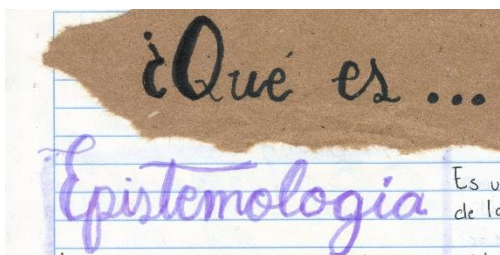 ¿Qué es...
Epistemología
Es u
de lo